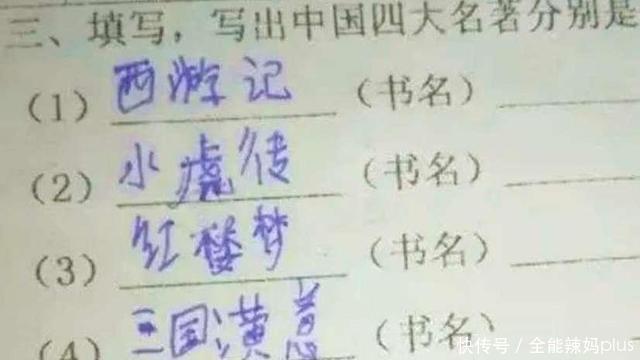 三、填写，写出中国四大名著分别是
(1) 西游记 (书名)
(2) 水虎传 (书名)
(3) 红楼梦 (书名)
(4) 三国演意 (书名)
快传号 / 全能辣妈plus